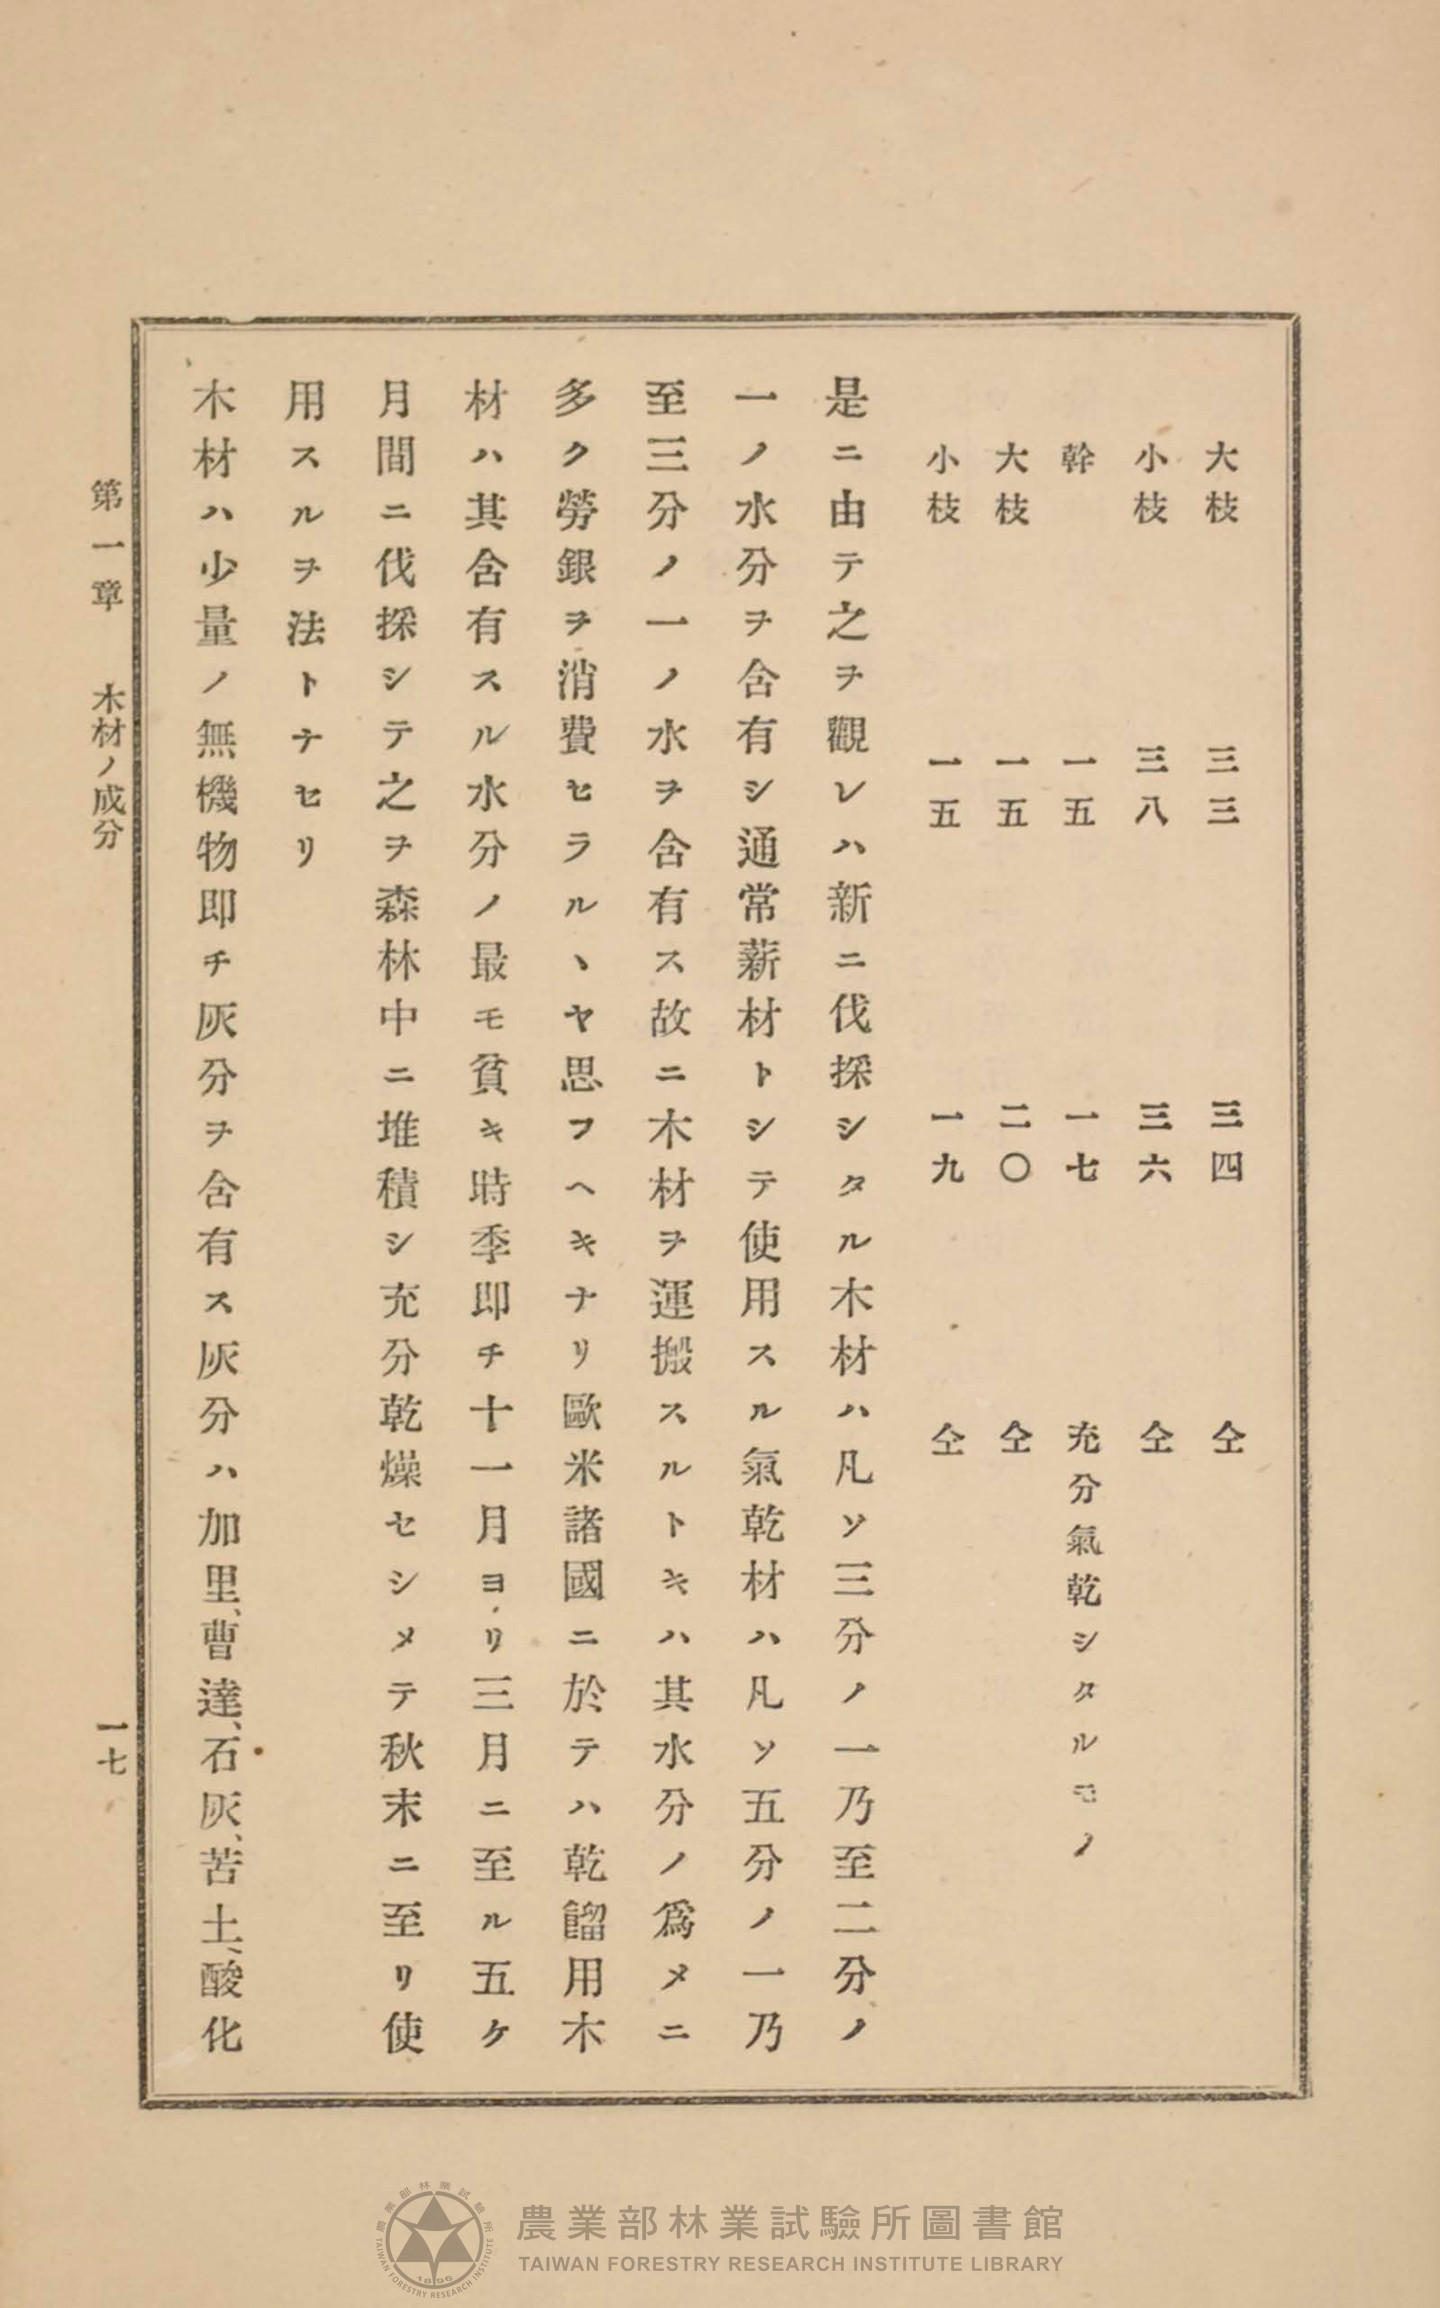 大枝　三三　三四　仝
小枝　三八　三六　仝
幹　一五　一七　充分氣乾シタルモノ
大枝　一五　二〇　仝
小枝　一五　一九　仝
是ニ由テ之ヲ觀レハ新ニ伐採シタル木材ハ凡ソ三分ノ一乃至二分ノ
一ノ水分ヲ含有シ通常薪材トシテ使用スル氣乾材ハ凡ソ五分ノ一乃
至三分ノ一ノ水ヲ含有ス故ニ木材ヲ運搬スルトキハ其水分ノ爲メニ
多ク勞銀ヲ消費セラルヽヤ思フヘキナリ歐米諸國ニ於テハ乾餾用木
材ハ其含有スル水分ノ最モ貧キ時季即チ十一月ヨリ三月ニ至ル五ケ
月間ニ伐採シテ之ヲ森林中ニ堆積シ充分乾燥セシメテ秋末ニ至リ使
用スルヲ法トナセリ
木材ハ少量ノ無機物即チ灰分ヲ含有ス灰分ハ加里、曹達、石灰、苦土、酸化
第一章　木材ノ成分　一七
農業部林業試驗所圖書館
TAIWAN FORESTRY RESEARCH INSTITUTE LIBRARY
農業部林業試驗所
TAIWAN FORESTRY RESEARCH INSTITUTE
1896